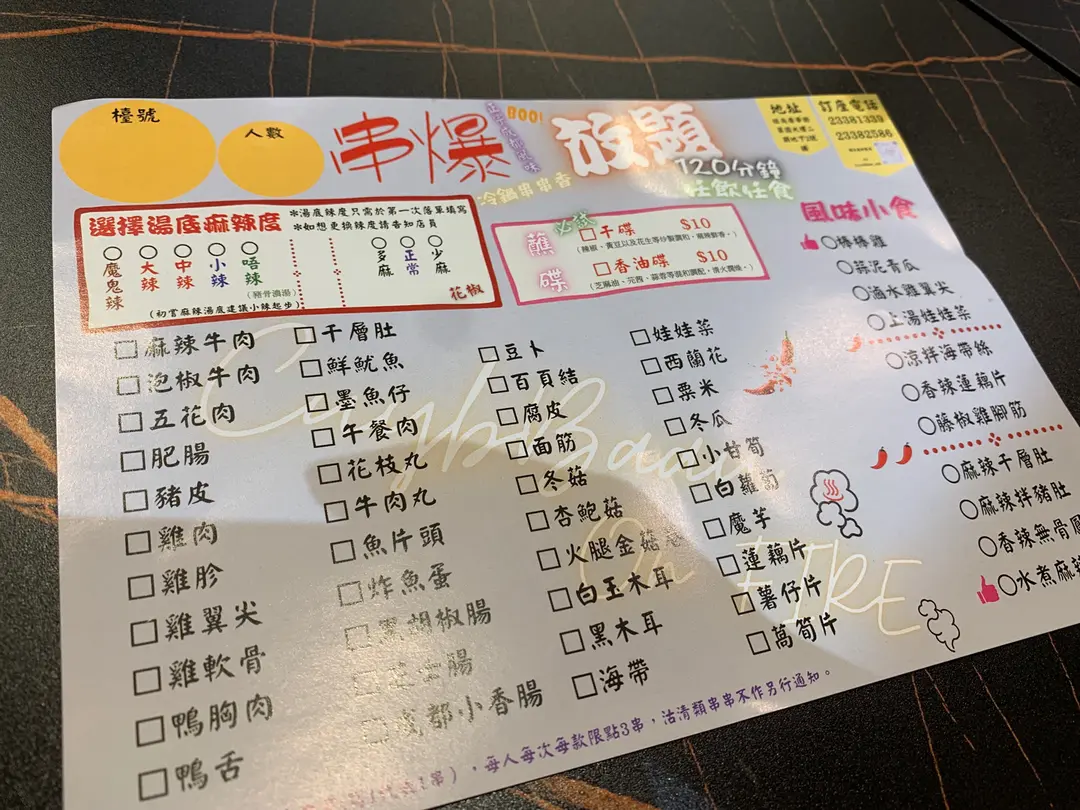 檯號
人數
串爆
BOO!
放題
120分鐘
任飲任食
冷鍋串串香
地址
訂座電話
23381339
23382586
選擇湯底麻辣度
*湯底辣度只需於第一次落單填寫
*如想更換辣度請告知店員
魔鬼辣
大辣
中辣
小辣
唔辣
(豬骨濃湯)
多麻
正常
少麻
花椒
(初嘗麻辣湯底建議小辣起步)
蘸碟
必落
干碟 $10
香油碟 $10
風味小食
棒棒雞
蒜泥青瓜
滷水雞翼尖
上湯娃娃菜
涼拌海帶絲
香辣蓮藕片
藤椒雞腳筋
麻辣千層肚
麻辣拌豬肚
香辣無骨
水煮麻辣
麻辣牛肉
泡椒牛肉
五花肉
肥腸
豬皮
雞肉
雞胗
雞翼尖
雞軟骨
鴨胸肉
鴨舌
千層肚
鮮魷魚
墨魚仔
午餐肉
花枝丸
牛肉丸
魚片頭
炸魚蛋
黑胡椒腸
芝士腸
成都小香腸
豆卜
百頁結
腐皮
面筋
冬菇
杏鮑菇
火腿金菇
白玉木耳
黑木耳
海帶
娃娃菜
西蘭花
粟米
冬瓜
小甘筍
白蘿蔔
魔芋
蓮藕片
薯仔片
萵筍片
CrayhBaau
On FIRE
每人每次每款限點3串，沽清類串串不作另行通知。